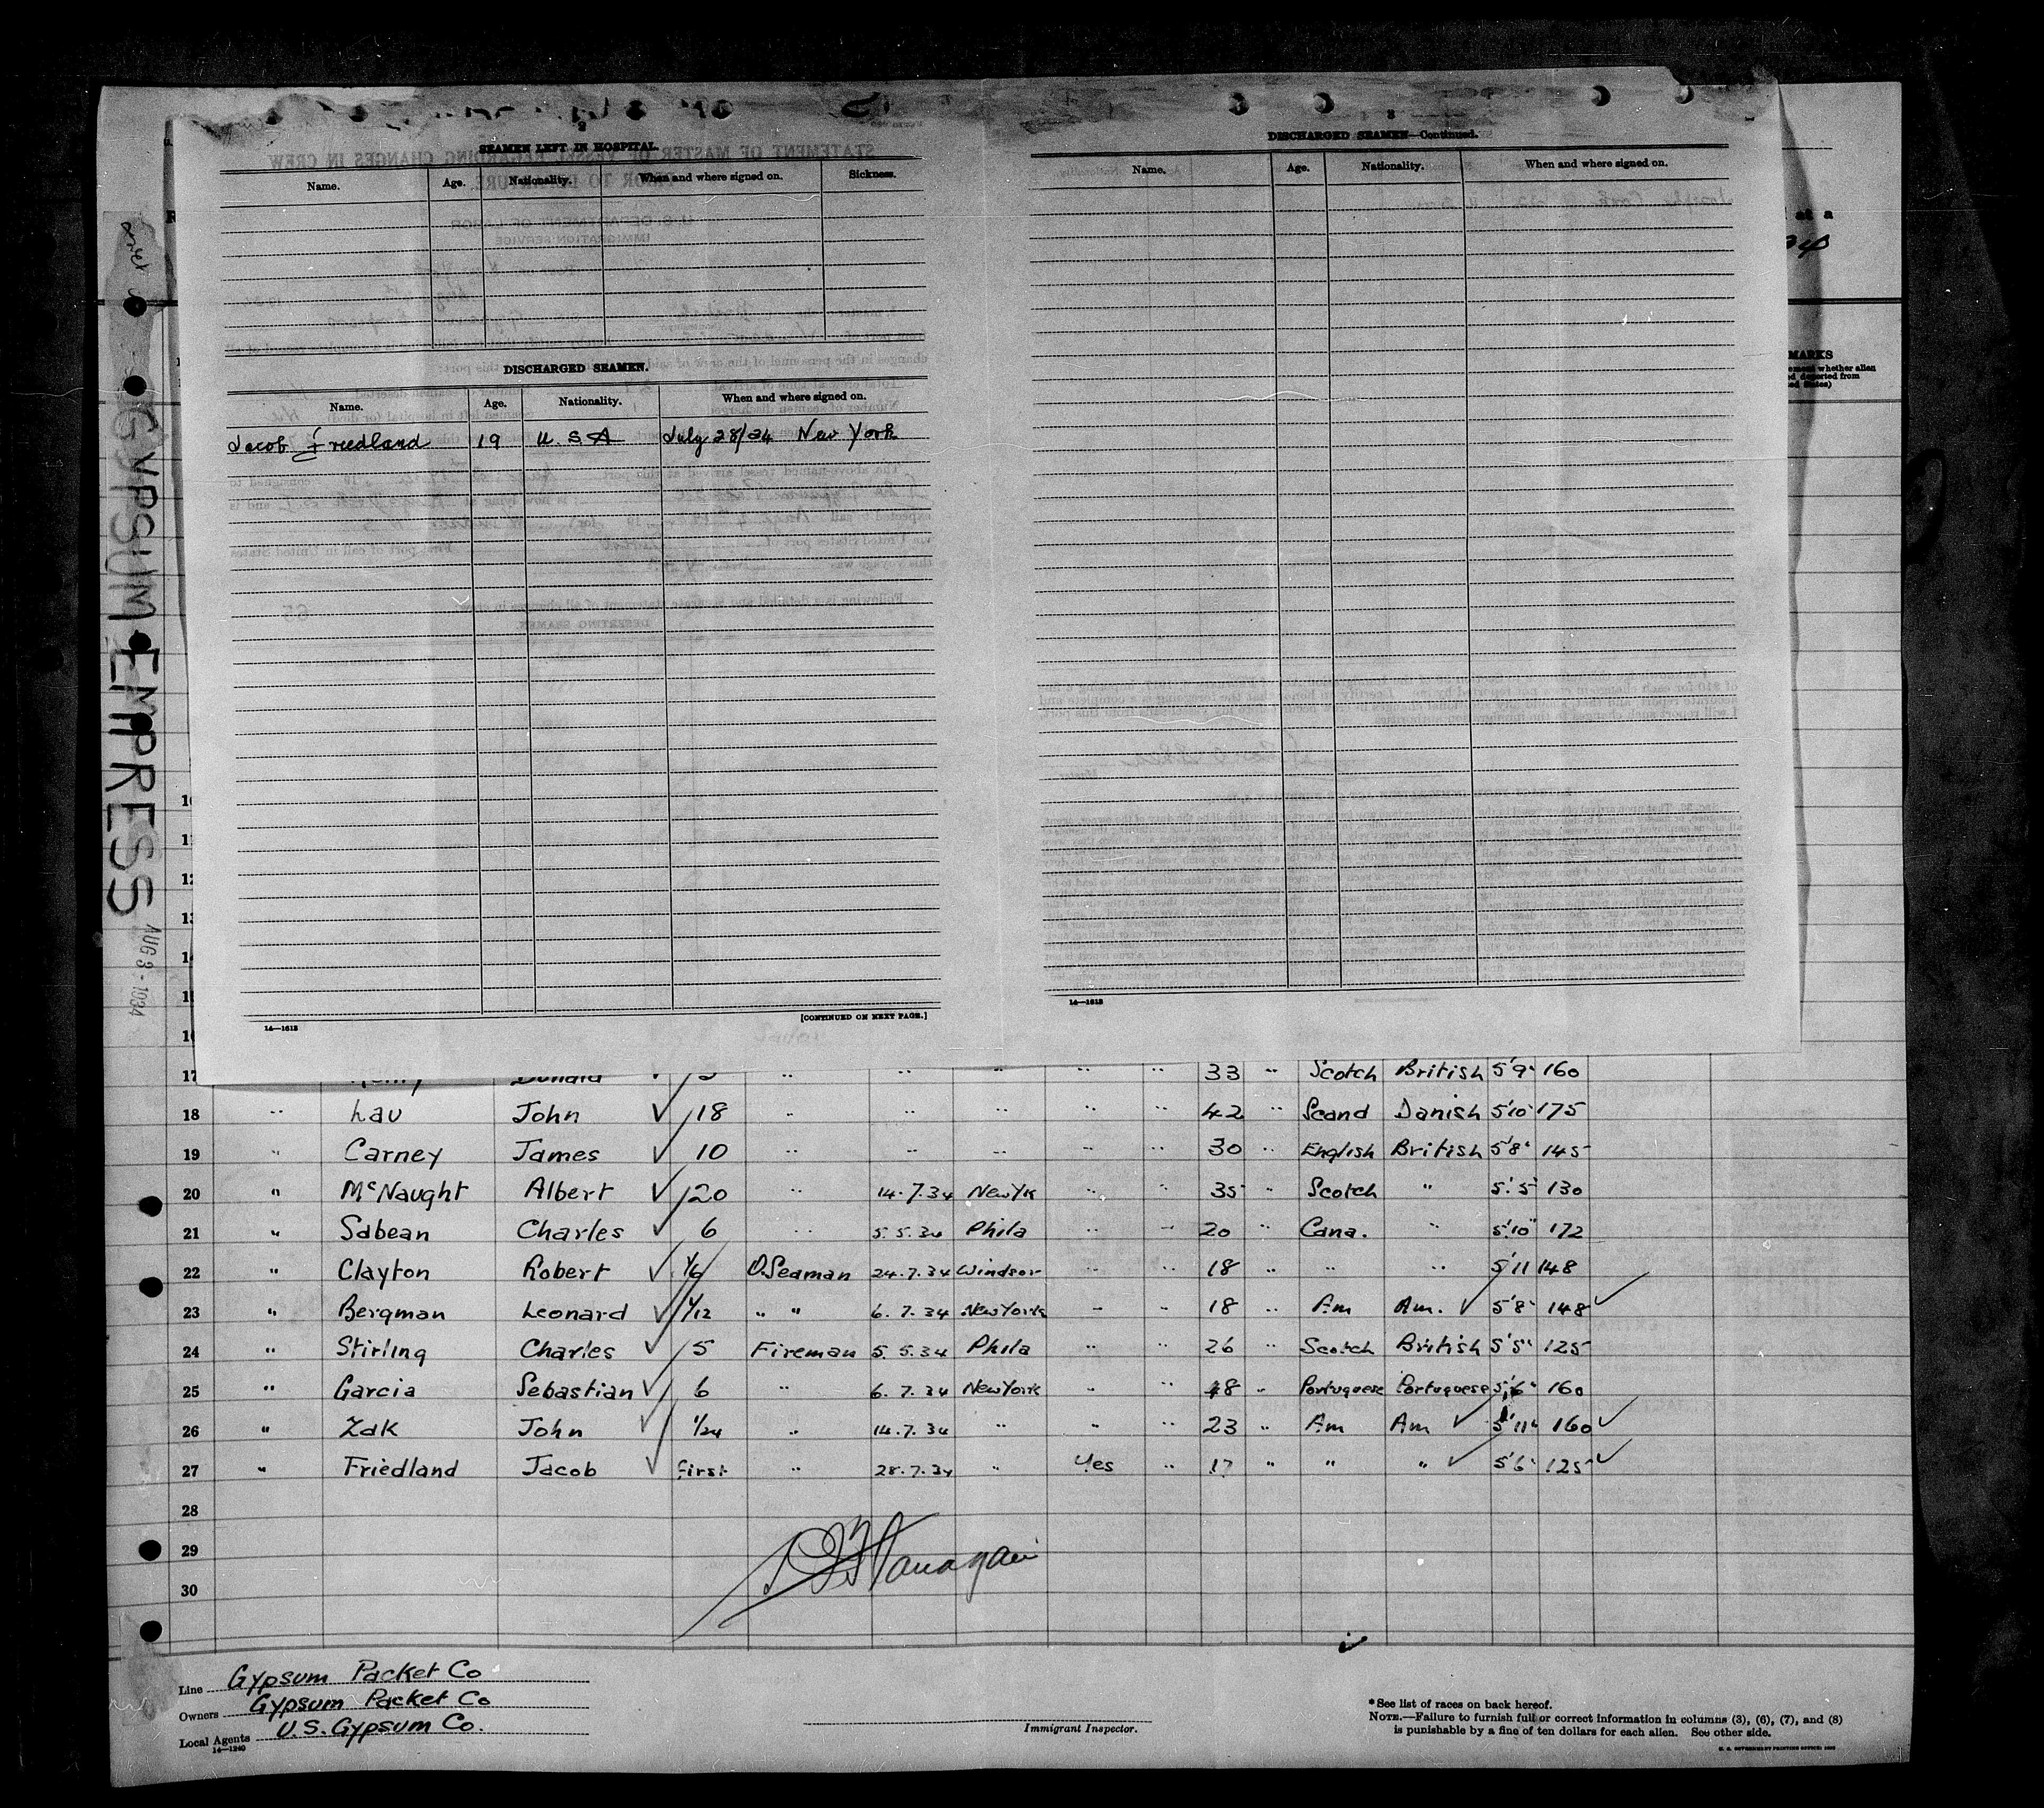 SEAMEN LEFT IN HOSPITAL.
Name. Age. Nationality. When and where signed on. Sickness.
DISCHARGED SEAMEN.
Name. Age. Nationality. When and where signed on.
Jacob Friedland 19 U.S.A July 28/34 New York
14—1613
[CONTINUED ON NEXT PAGE.]
DISCHARGED SEAMEN—Continued.
Name. Age. Nationality. When and where signed on.
14—1613
GYPSUM EMPRESS
AUG 3 - 1934
at a
MARKS
10
11
12
13
14
15
16
17 Donald ✓ 33 " Scotch British 5'9" 160
18 " Lau John ✓ 18 " " " " " 42 " Scand Danish 5'10" 175
19 " Carney James ✓ 10 " " " " " 30 " English British 5'8" 145
20 " McNaught Albert ✓ 20 " 14.7.34 NewYk " " 35 " Scotch " 5'5" 130
21 " Sabean Charles ✓ 6 " 5.5.34 Phila " " 20 " Cana. " 5'10" 172
22 " Clayton Robert ✓ 1/6 O.Seaman 24.7.34 Windsor " " 18 " " " 5'11 148
23 " Bergman Leonard ✓ 1/12 " " 6.7.34 NewYork " " 18 " Am Am. ✓ 5'8" 148 ✓
24 " Stirling Charles ✓ 5 Fireman 5.5.34 Phila " " 26 " Scotch British 5'5" 125
25 " Garcia Sebastian ✓ 6 " 6.7.34 NewYork " " 48 " Portuguese Portuguese 5'6" 160
26 " Zak John ✓ 1/24 " 14.7.34 " " " 23 " Am Am ✓ 5'11" 160 ✓
27 " Friedland Jacob ✓ first " 28.7.34 " Yes " 17 " " " ✓ 5'6" 125 ✓
28
29
30
Line Gypsum Packet Co
Owners Gypsum Packet Co
Local Agents U.S. Gypsum Co.
14—1240
Immigrant Inspector.
*See list of races on back hereof.
NOTE.—Failure to furnish full or correct information in columns (3), (6), (7), and (8)
is punishable by a fine of ten dollars for each alien. See other side.
U. S. GOVERNMENT PRINTING OFFICE: